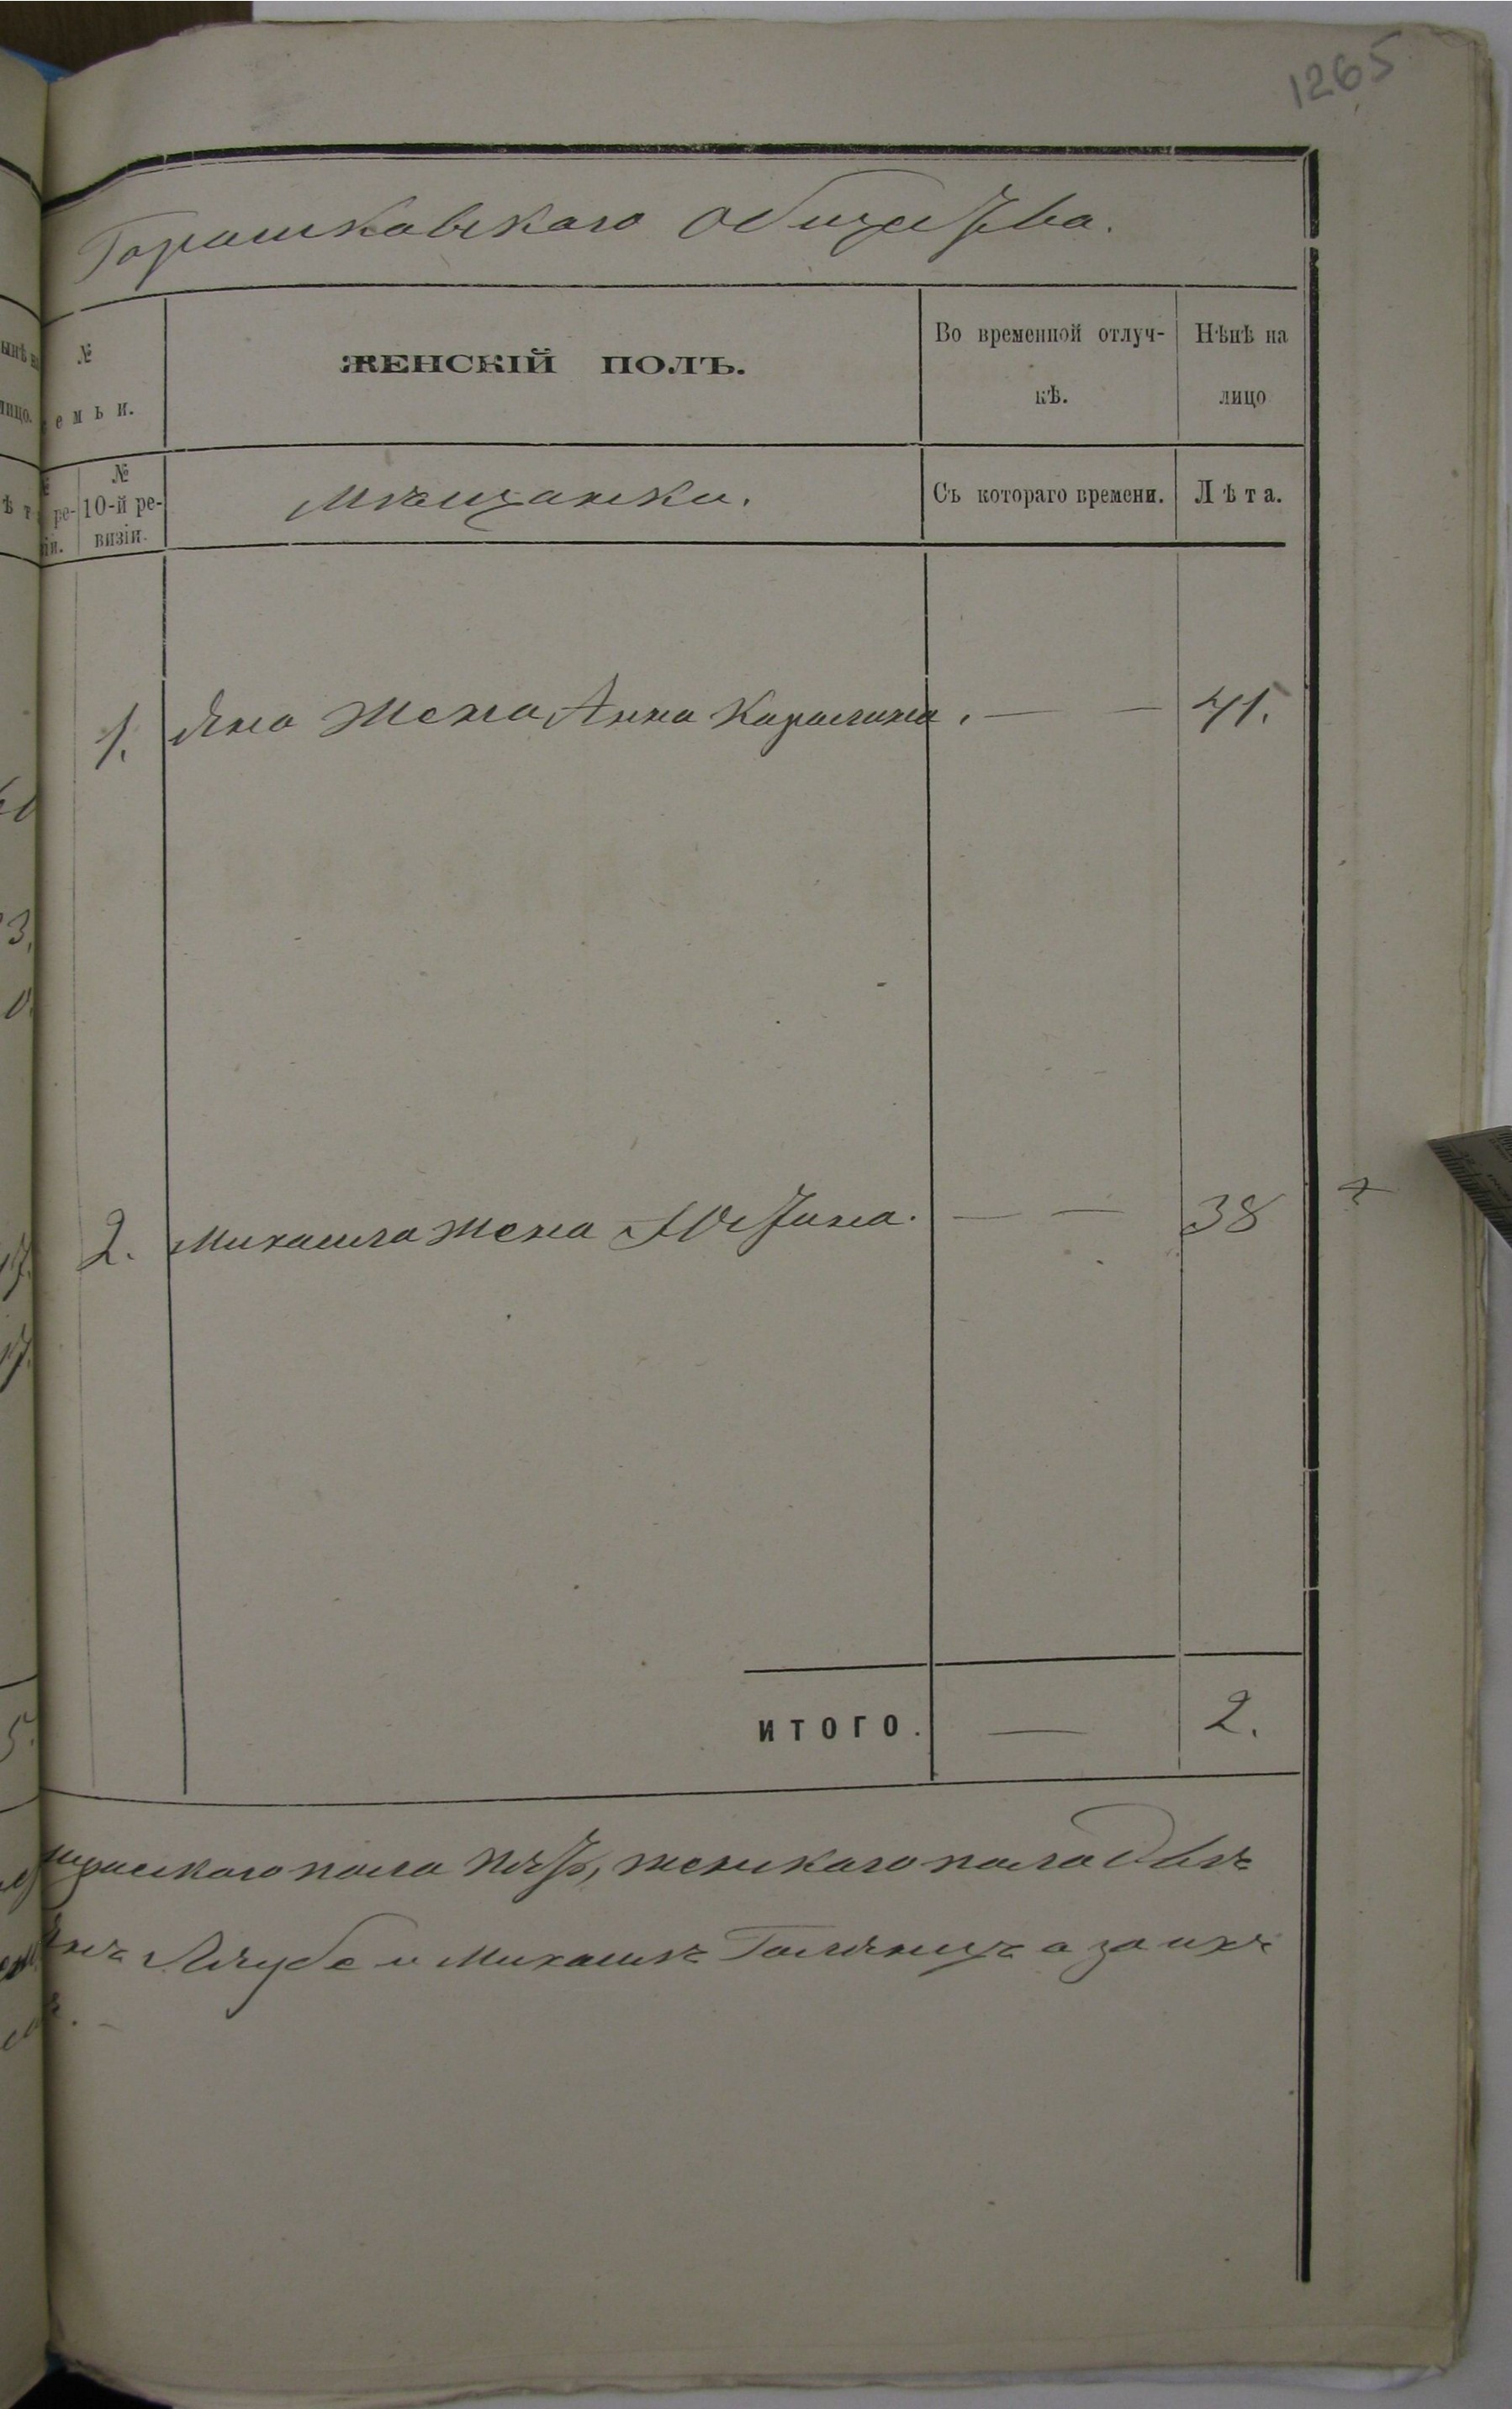 1265
Горошковскаго Общества.
№
емьи.
ЖЕНСКІЙ ПОЛЪ.
Во временной отлуч-
кѣ.
Нѣнѣ на
лицо
№
10-й ре-
визіи.
Мѣщанки.
Съ котораго времени.
Лѣта.
1. Яна жена Анна Каролина. — — 41.
2. Михаила жена Юстина. — — 38
ИТОГО. — 2.
мужескаго пола пять, женскаго пола двѣ
и Михаилъ а за ихъ